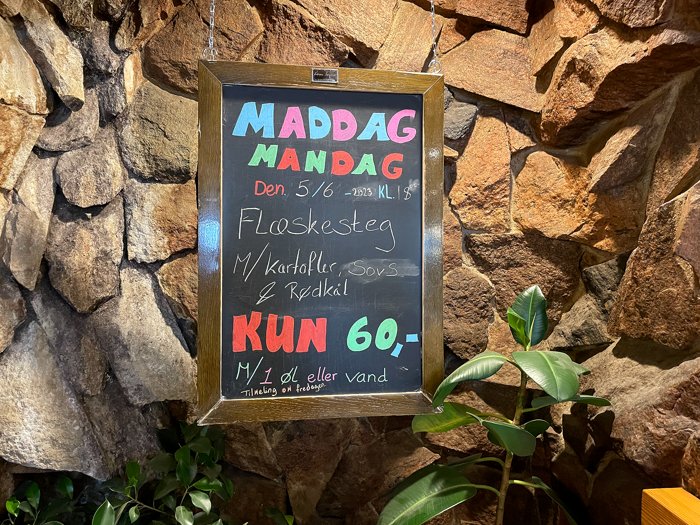 MADDAG
MANDAG
Den. 5/6 -2023 KL. 18
Flæskesteg
M/Kartofler, Sovs
& Rødkål
KUN 60,-
M/ 1 øl eller vand
Tilmeling